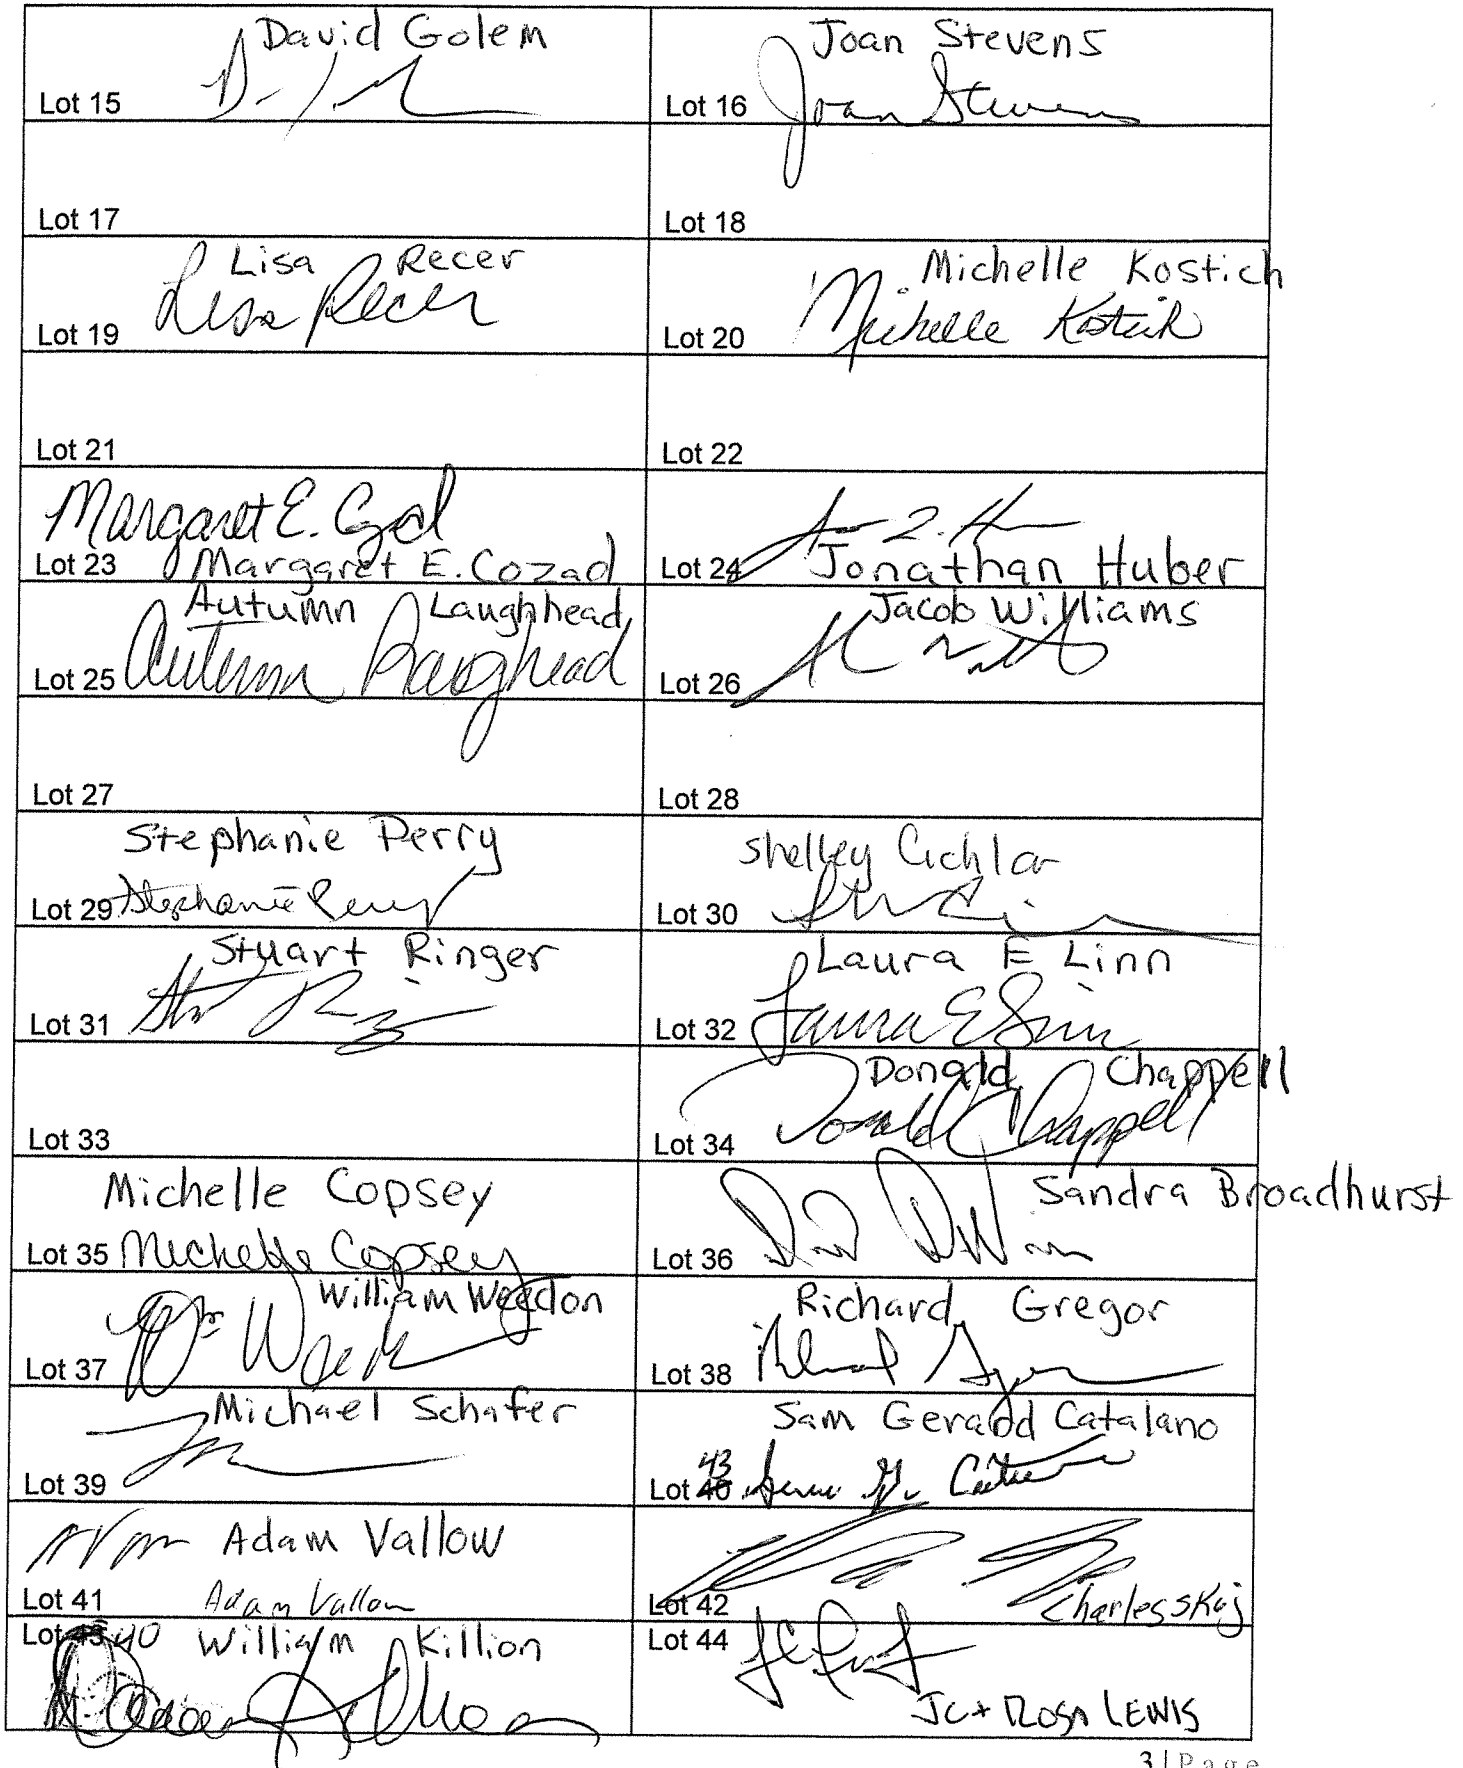 David Golem
Lot 15
Joan Stevens
Lot 16 Joan Stevens
Lot 17
Lot 18
Lisa Recer
Lot 19 Lisa Recer
Michelle Kostich
Lot 20 Michelle Kostich
Lot 21
Lot 22
Margaret E. Cozad
Lot 23 Margaret E. Cozad
Lot 24 Jonathan Huber
Autumn Laughhead
Lot 25 Autumn Laughhead
Jacob Williams
Lot 26
Lot 27
Lot 28
Stephanie Perry
Lot 29 Stephanie Perry
Shelley Cichlar
Lot 30
Stuart Ringer
Lot 31
Laura E Linn
Lot 32 Laura E Linn
Lot 33
Donald Chappell
Lot 34 Donald Chappell
Michelle Copsey
Lot 35 Michelle Copsey
Sandra Broadhurst
Lot 36
William Weedon
Lot 37
Richard Gregor
Lot 38
Michael Schafer
Lot 39
Sam Gerardd Catalano
43
Lot 40
Adam Vallow
Lot 41 Adam Vallow
Lot 42 Charles
Lot 43 40 William Killion
Lot 44
JC + Rosa LEWIS
3 | Page